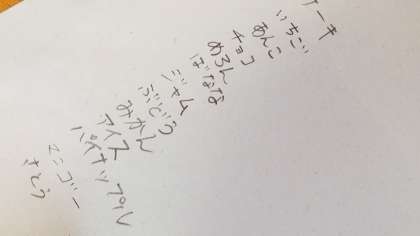 ケーキ
いちご
あんこ
チョコ
めろん
ばなな
ジャム
ぶどう
みかん
アイス
パイナップル
マンゴー
さとう